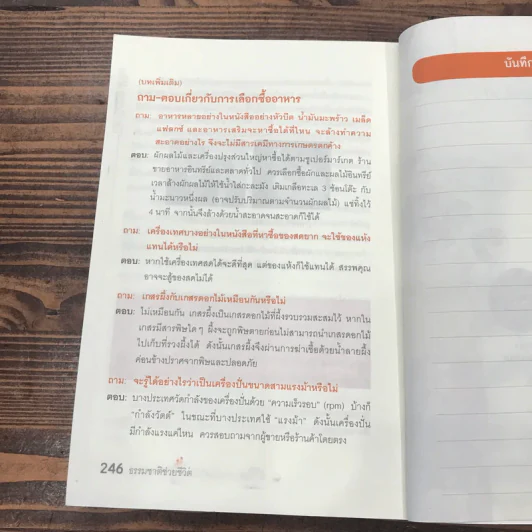 (บทเพิ่มเติม)
ถาม-ตอบเกี่ยวกับการเลือกซื้ออาหาร
ถาม: อาหารหลายอย่างในหนังสืออย่างหัวบีต น้ำมันมะพร้าว เมล็ด
แฟลกซ์ และอาหารเสริมจะหาซื้อได้ที่ไหน จะล้างทำความ
สะอาดอย่างไร จึงจะไม่มีสารเคมีทางการเกษตรตกค้าง
ตอบ: ผักผลไม้และเครื่องปรุงส่วนใหญ่หาซื้อได้ตามซูเปอร์มาร์เกต ร้าน
ขายอาหารอินทรีย์และตลาดทั่วไป ควรเลือกซื้อผักและผลไม้อินทรีย์
เวลาล้างผักผลไม้ให้ใช้น้ำใส่กะละมัง เติมเกลือทะเล 3 ช้อนโต๊ะ กับ
น้ำมะนาวหนึ่งผล (อาจปรับปริมาณตามจำนวนผักผลไม้) แช่ทิ้งไว้
4 นาที จากนั้นจึงล้างด้วยน้ำสะอาดจนสะอาดก็ใช้ได้
ถาม: เครื่องเทศบางอย่างในหนังสือที่หาซื้อของสดยาก จะใช้ของแห้ง
แทนได้หรือไม่
ตอบ: หากใช้เครื่องเทศสดได้จะดีที่สุด แต่ของแห้งก็ใช้แทนได้ สรรพคุณ
อาจจะสู้ของสดไม่ได้
ถาม: เกสรผึ้งกับเกสรดอกไม้เหมือนกันหรือไม่
ตอบ: ไม่เหมือนกัน เกสรผึ้งเป็นเกสรดอกไม้ที่ผึ้งรวบรวมสะสมไว้ หากใน
เกสรมีสารพิษใดๆ ผึ้งจะถูกพิษตายก่อนไม่สามารถนำเกสรดอกไม้
ไปเก็บที่รวงผึ้งได้ ดังนั้นเกสรผึ้งจึงผ่านการฆ่าเชื้อด้วยน้ำลายผึ้ง
ค่อนข้างปราศจากพิษและปลอดภัย
ถาม: จะรู้ได้อย่างไรว่าเป็นเครื่องปั่นขนาดสามแรงม้าหรือไม่
ตอบ: บางประเทศวัดกำลังของเครื่องปั่นด้วย "ความเร็วรอบ" (rpm) บ้างก็
"กำลังวัตต์" ในขณะที่บางประเทศใช้ "แรงม้า" ดังนั้นเครื่องปั่น
มีกำลังแรงแค่ไหน ควรสอบถามจากผู้ขายหรือร้านค้าโดยตรง
246 ธรรมชาติช่วยชีวิต
บันทึก